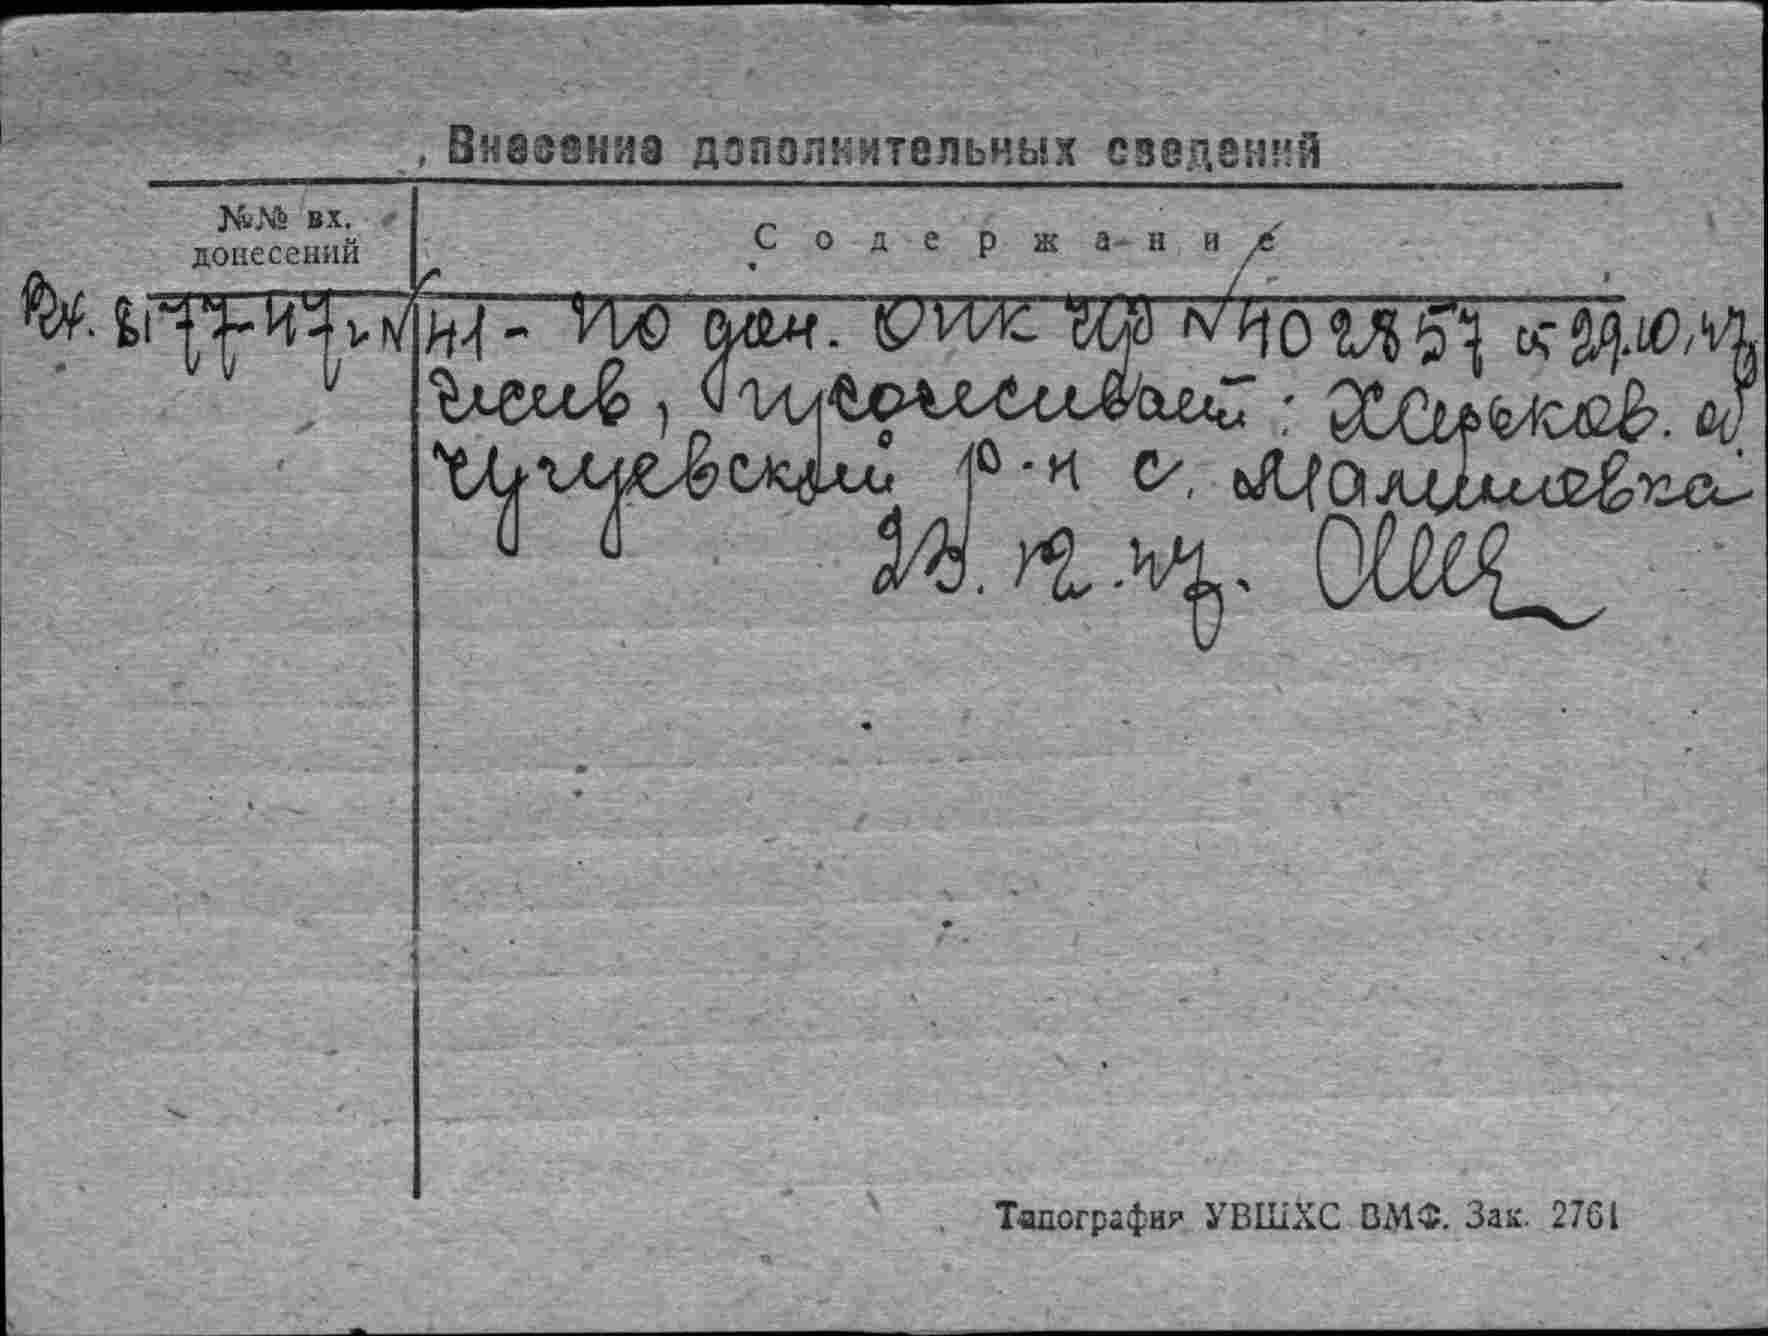 Внесение дополнительных сведений
№№ вх.
донесений
Содержание
Вх. 8177-47г. №41 - По дан. ОПК ЦР №402857 от 29.10.47
жив, проживает: Харьков. об.
Чугуевский р-н с. Малиновка
23.12.47.
Типография УВШХС ВМФ. Зак. 2761